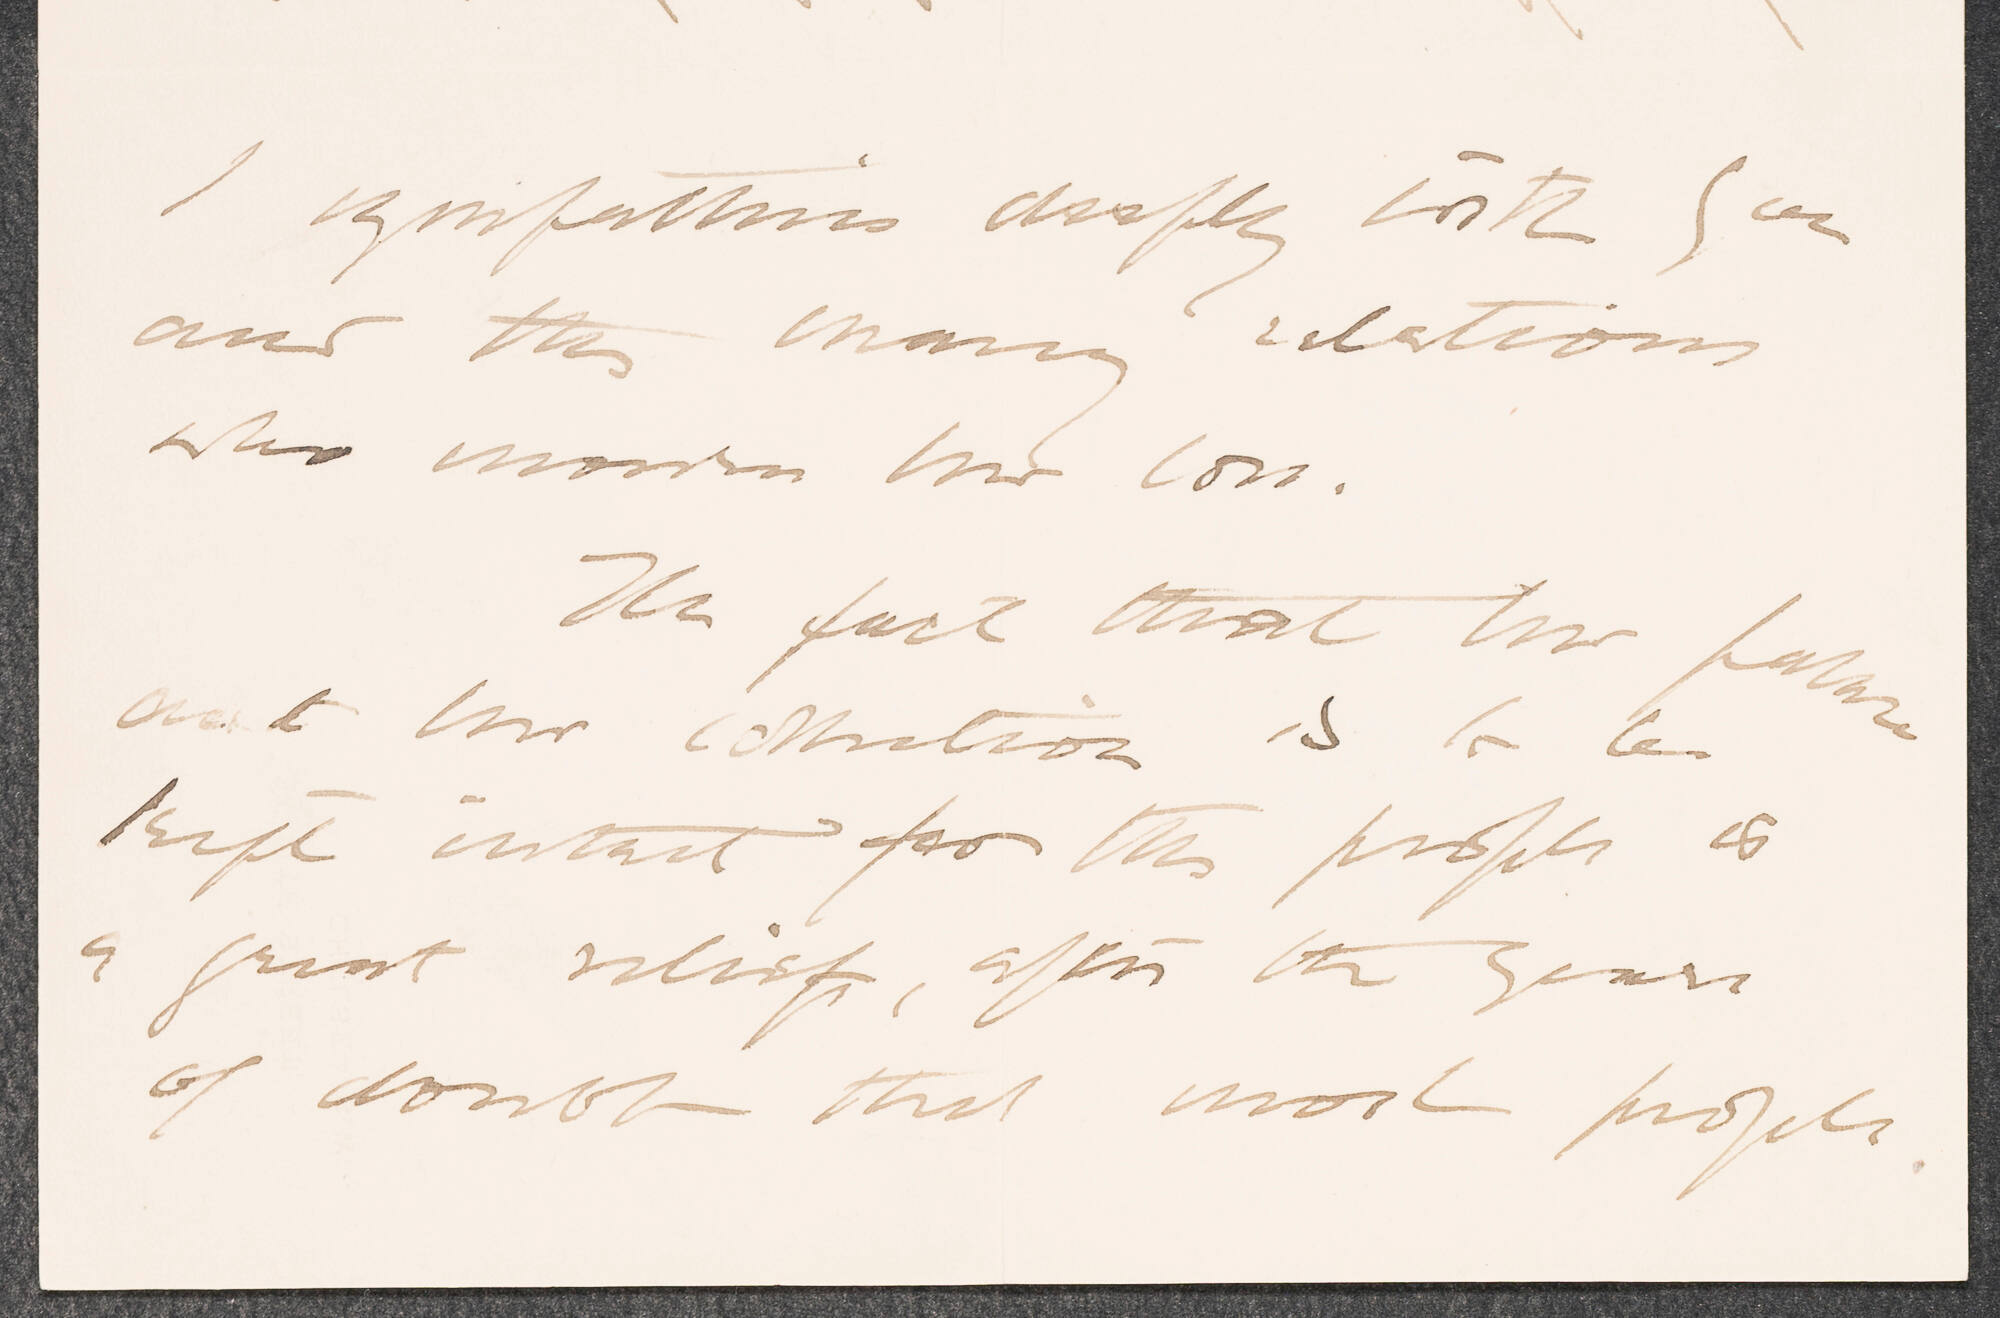 I sympathise deeply with you
and the many relations
who mourn her loss.
The fact that her palace
and her collection is to be
kept intact for the people is
a great relief, after the years
of doubt that most people